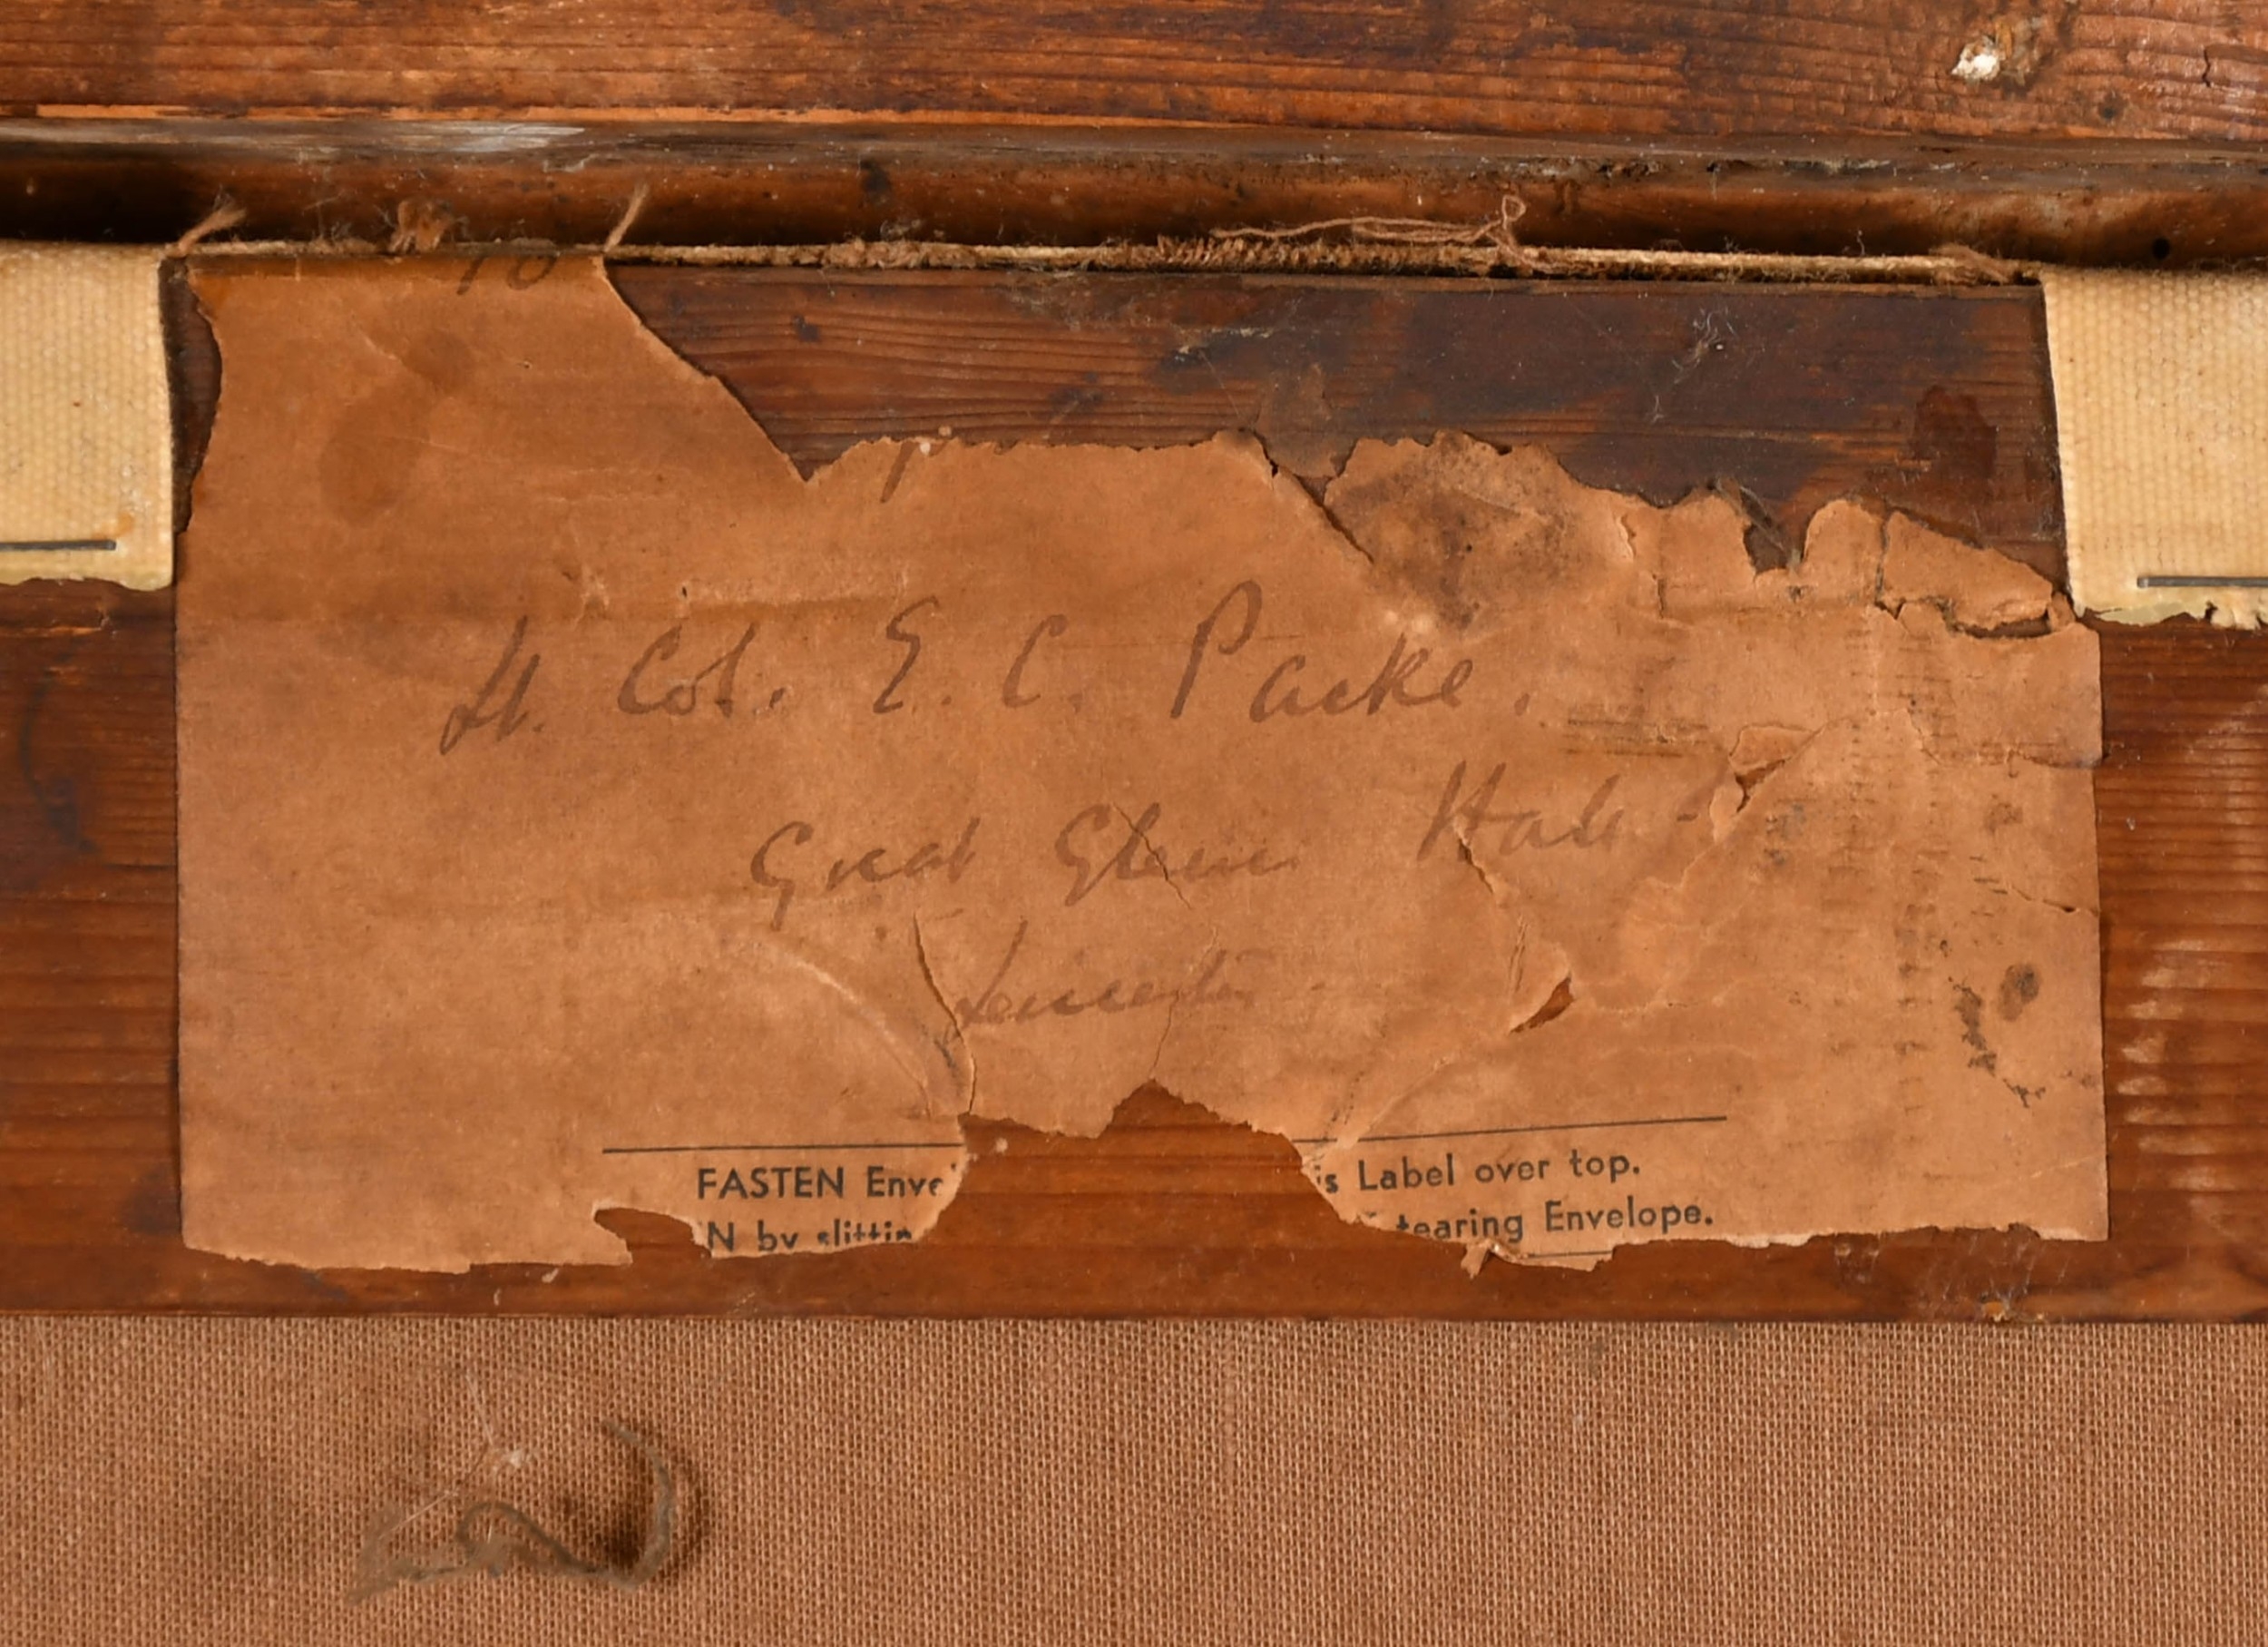 Lt. Col. E. C. Packe.
Great Glenn Hall
Leicester
FASTEN Enve is Label over top.
N by slittin tearing Envelope.